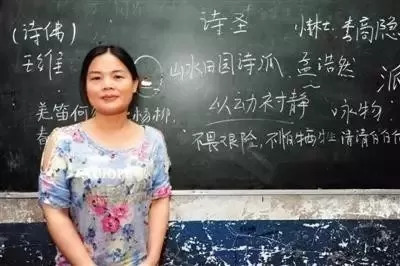 (诗佛)
诗圣
小林士 李商隐
王维
山水田园诗派 孟浩然
派
羌笛何 杨柳
以动衬静
咏物:
春
不畏艰险, 不怕牺牲 清清白白